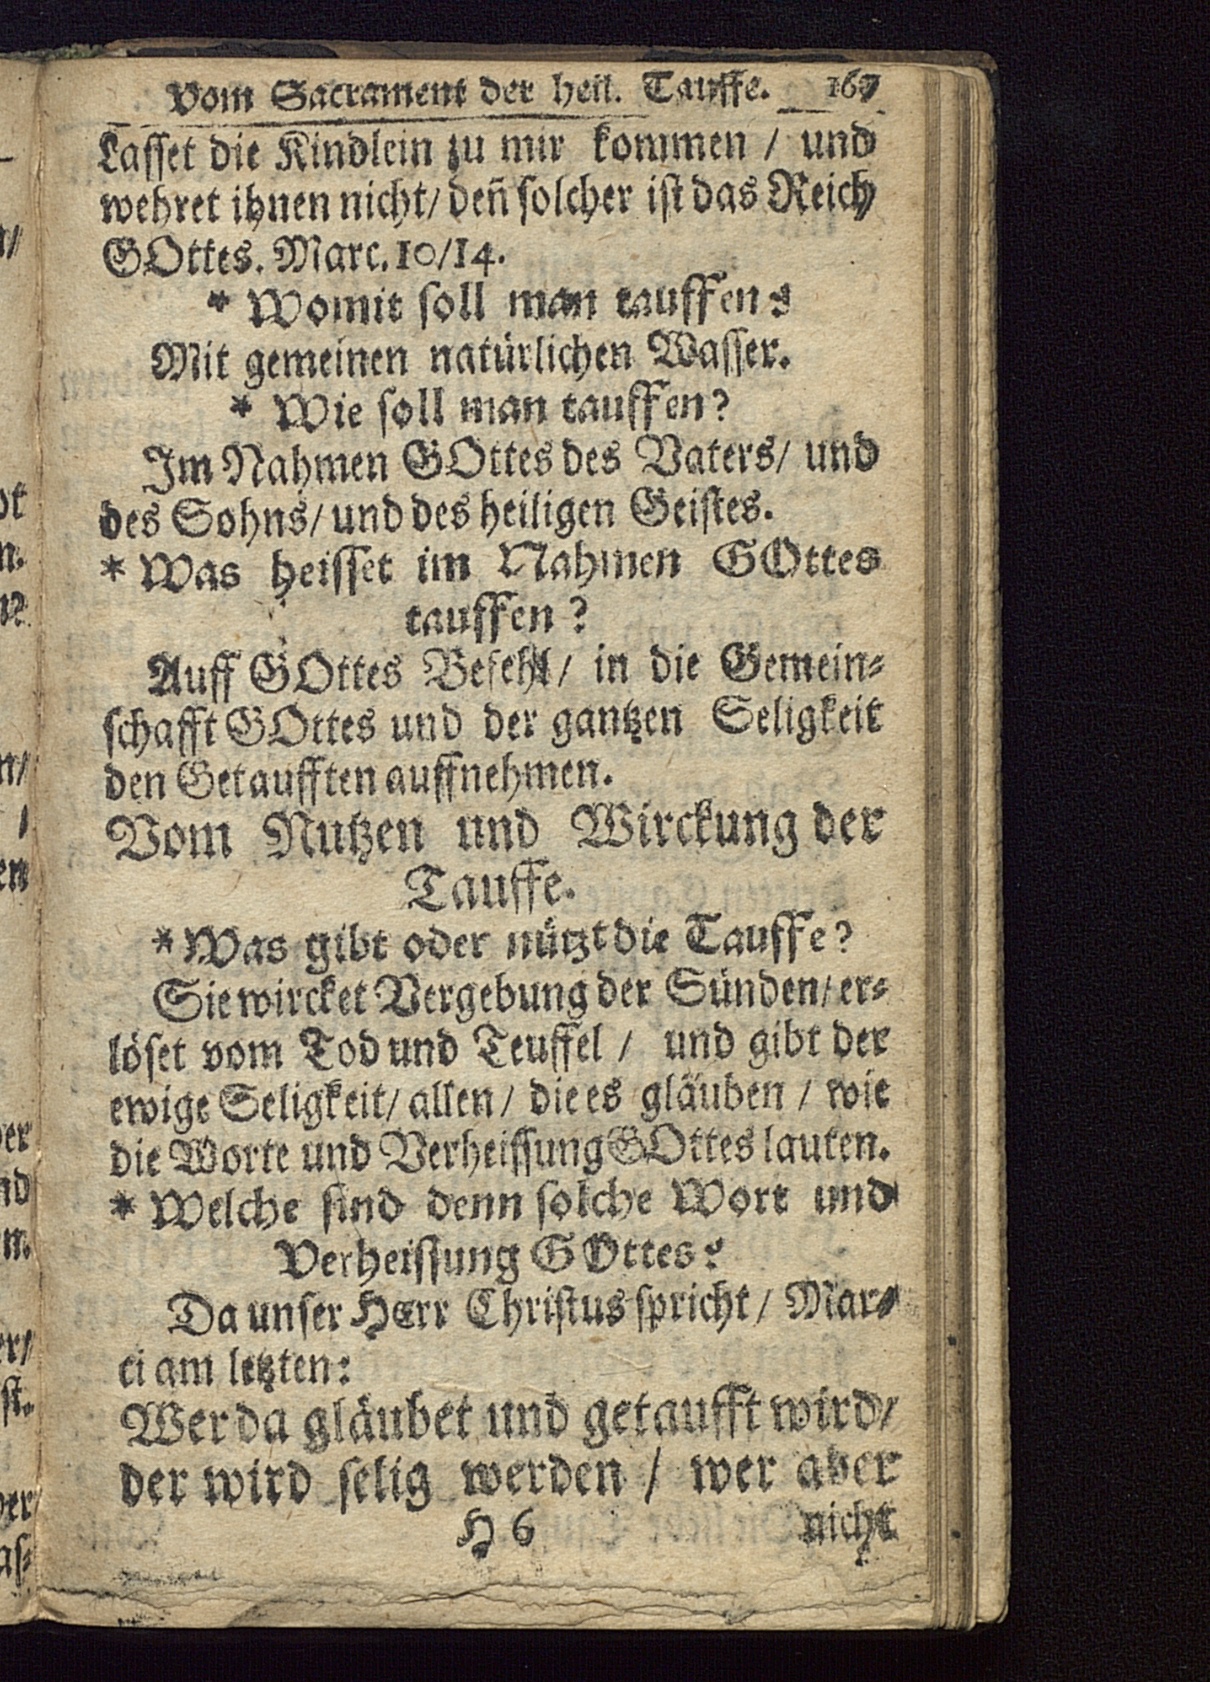 Vom Sacrament der heil. Tauffe. 167
Lasset die Kindlein zu mir kommen / und
wehret ihnen nicht/ deñ solcher ist das Reich
GOttes. Marc. 10/14.
* Womit soll man tauffen?
Mit gemeinen natürlichen Wasser.
* Wie soll man tauffen?
Im Nahmen GOttes des Vaters/ und
des Sohns/ und des heiligen Geistes.
* Was heisset im Nahmen GOttes
tauffen?
Auff GOttes Befehl/ in die Gemein-
schafft GOttes und der gantzen Seligkeit
den Getaufften auffnehmen.
Vom Nutzen und Wirckung der
Tauffe.
* Was gibt oder nützt die Tauffe?
Sie wircket Vergebung der Sünden/ er-
löset vom Tod und Teuffel / und gibt der
ewige Seligkeit/ allen / die es gläuben / wie
die Worte und Verheissung GOttes lauten.
* Welche sind denn solche Wort und
Verheissung GOttes?
Da unser HErr Christus spricht / Mar-
ci am letzten:
Wer da gläubet und getaufft wird/
der wird selig werden / wer aber
H 6 nicht